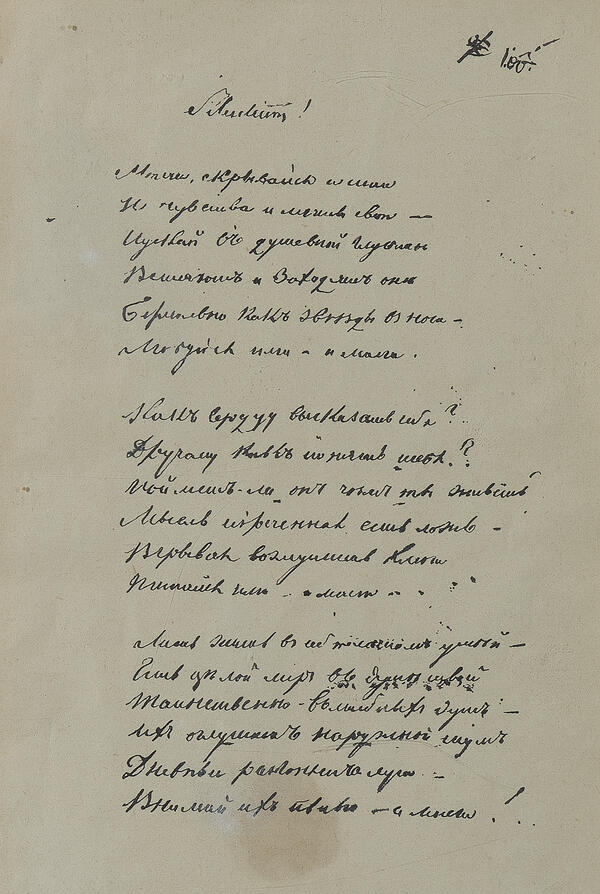 Silentium!
Молчи, скрывайся и таи
И чувства и мечты свои —
Пускай въ душевной глубинѣ
Встаютъ и заходятъ онѣ
Безмолвно какъ звѣзды въ ночи —
Любуйся ими — и молчи.
Какъ сердцу высказать себя?
Другому какъ понять тебя?
Пойметъ-ли онъ чѣмъ ты живешь
Мысль изреченная есть ложь —
Взрывая возмутишь ключи
Питайся ими — и молчи —
Лишь жить въ себѣ самомъ умѣй —
Есть цѣлой миръ въ душѣ твоей
Таинственно-волшебныхъ думъ —
Ихъ оглушитъ наружной шумъ
Дневные разгонятъ лучи —
Внимай ихъ пѣнью — и молчи!